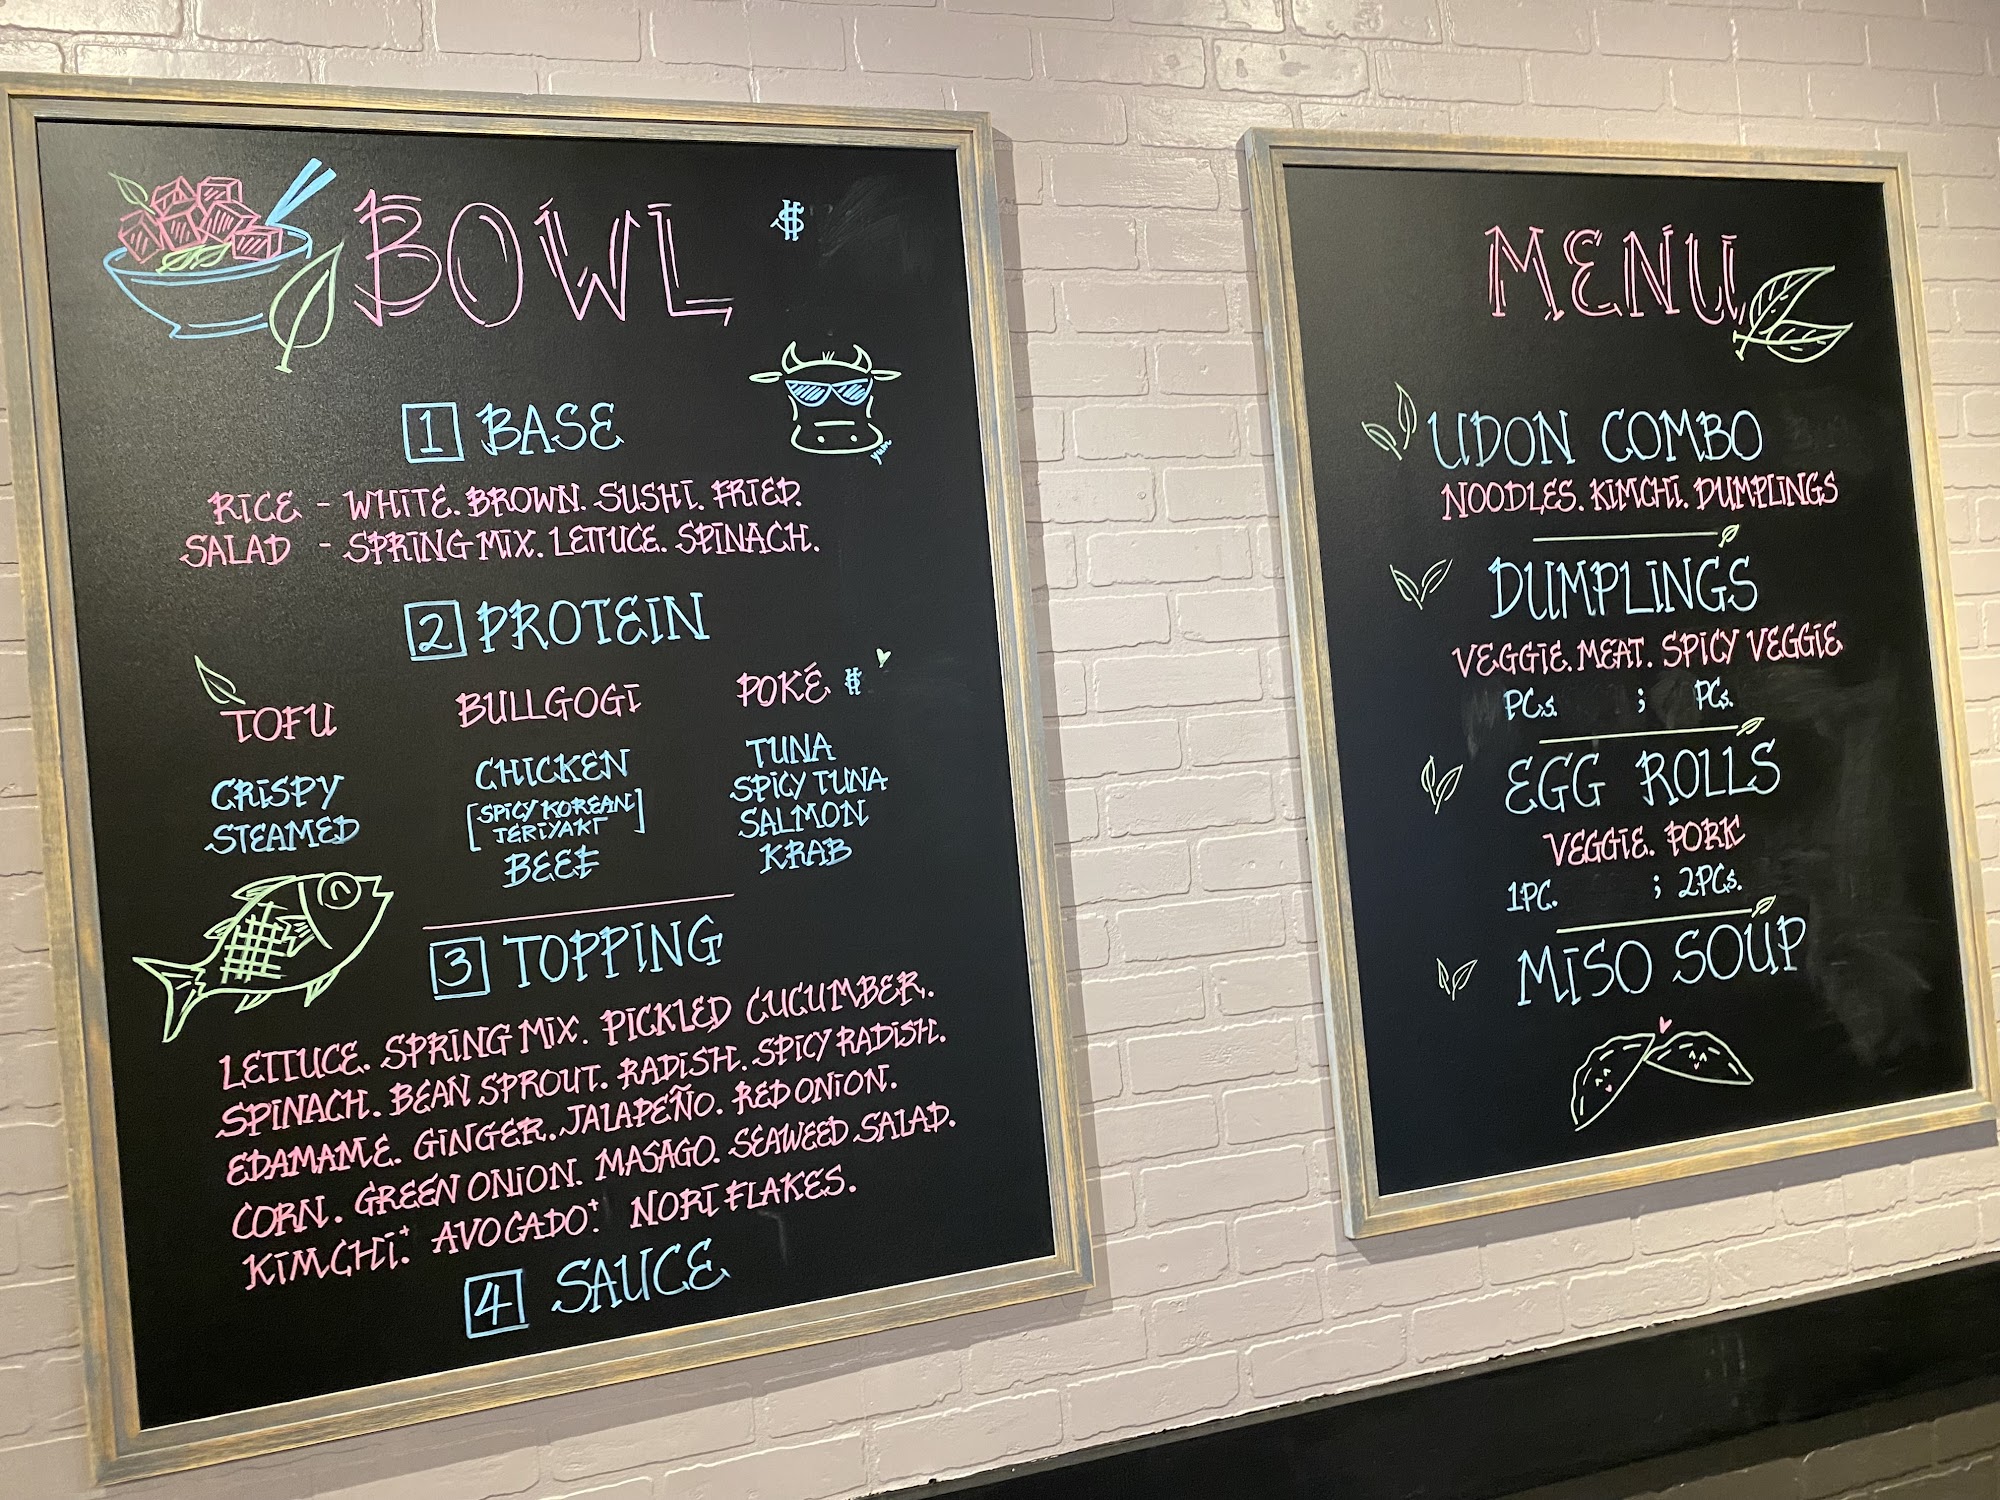 BOWL $
yum
1 BASE
RICE - WHITE. BROWN. SUSHI. FRIED.
SALAD - SPRING MIX. LETTUCE. SPINACH.
2 PROTEIN
TOFU
CRISPY
STEAMED
BULLGOGI
CHICKEN
[SPICY KOREAN
TERIYAKI]
BEEF
POKÉ $
TUNA
SPICY TUNA
SALMON
KRAB
3 TOPPING
LETTUCE. SPRING MIX. PICKLED CUCUMBER.
SPINACH. BEAN SPROUT. RADISH. SPICY RADISH.
EDAMAME. GINGER. JALAPEÑO. RED ONION.
CORN. GREEN ONION. MASAGO. SEAWEED SALAD.
KIMCHI.+ AVOCADO.+ NORI FLAKES.
4 SAUCE
MENU
UDON COMBO
NOODLES. KIMCHI. DUMPLINGS
DUMPLINGS
VEGGIE. MEAT. SPICY VEGGIE
PCs. ; PCs.
EGG ROLLS
VEGGIE. PORK
1PC. ; 2PCs.
MISO SOUP